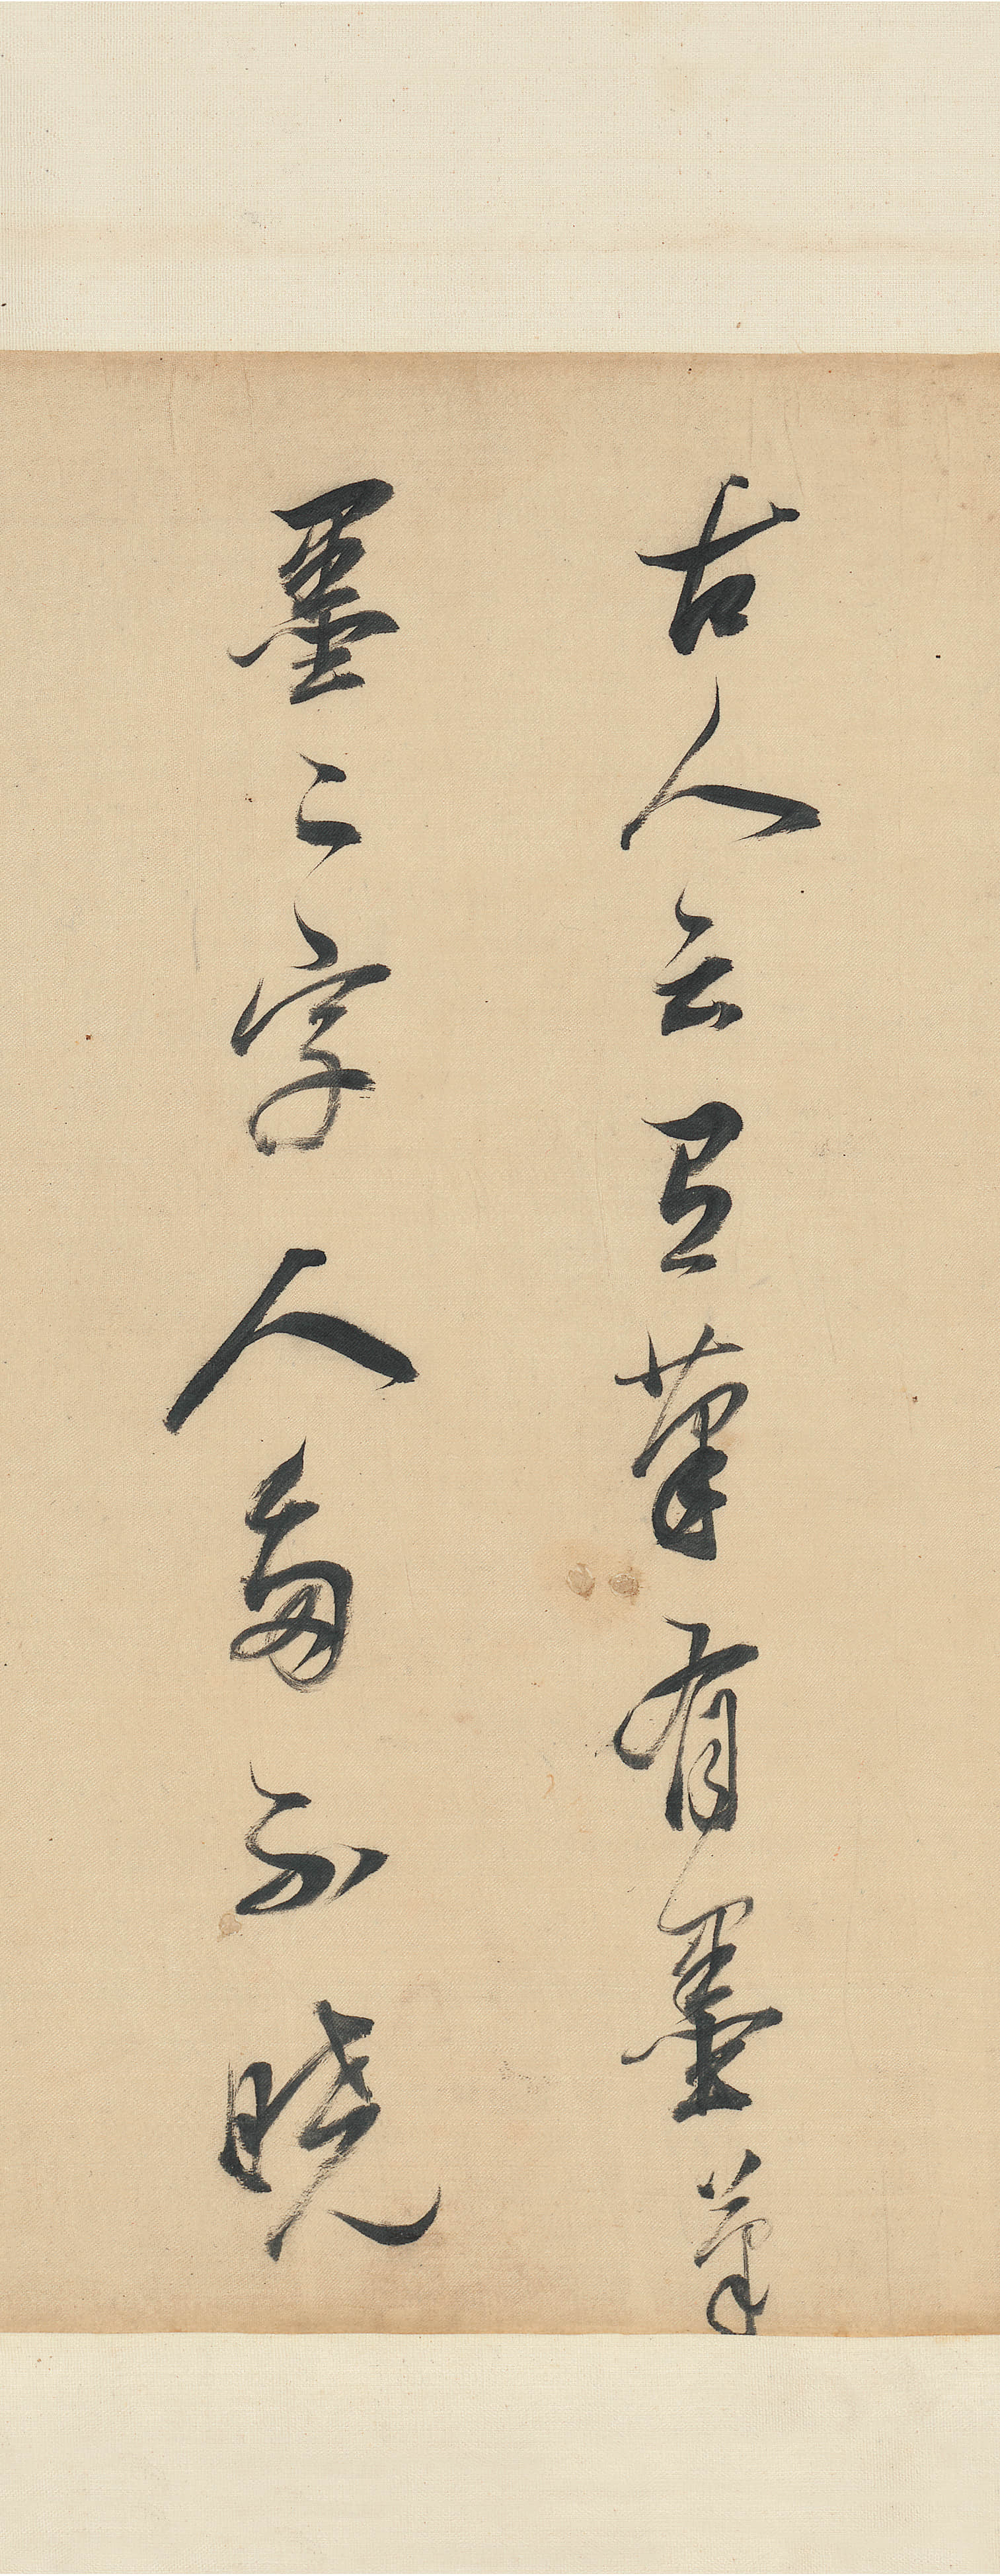 古人云有筆有墨筆
墨二字人多不曉